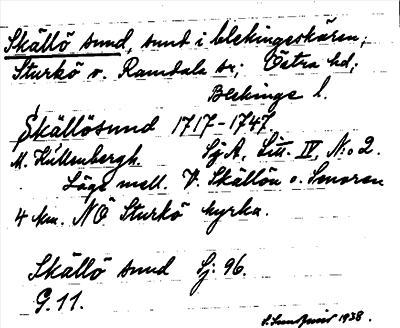 Skällö sund, sund i blekingeskären;
Sturkö o. Ramdala sr; Östra hd;
Blekinge l.
Skällösund 1717–1747
M. Hullenbergh. SjA, Litt. IV, N:o 2.
Läge mell. V. Skällön o. Senoren
4 km. NÖ Sturkö kyrka.
Skällö sund Sj. 96.
G. 11.
1938.